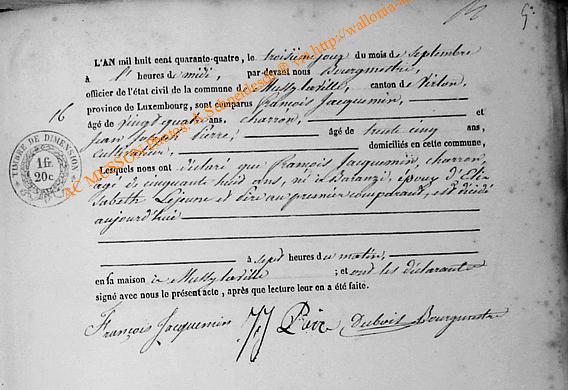 L'AN mil huit cent quarante-quatre, le troisième jour du mois de septembre
à heures de midi, par-devant nous Bourgmestre,
officier de l'état civil de la commune de Mussy-la-ville, canton de Virton,
province de Luxembourg, sont comparus François Jacquemin,
16
âgé de vingt quatre ans, charron, et
Jean Joseph Pierre, âgé de trente cinq ans,
cultivateur, domiciliés en cette commune,
TIMBRE DE DIMENSION
1 fr.
20 c.
Lesquels nous ont déclaré que François Jacquemin, charron,
agé de cinquante huit ans, né à Baranzi, époux d'Eli-
sabeth Lejeune et père au premier comparant, est décédé
aujourd'hui
à sept heures du matin,
en sa maison à Mussy-la-ville ; et ont les déclarants
signé avec nous le présent acte, après que lecture leur en a été faite.
François Jacquemin JJ Pierre Dubois Bourgmestre
AC MUSSON Photos: A. Schneidesch @ via http://wallonia-